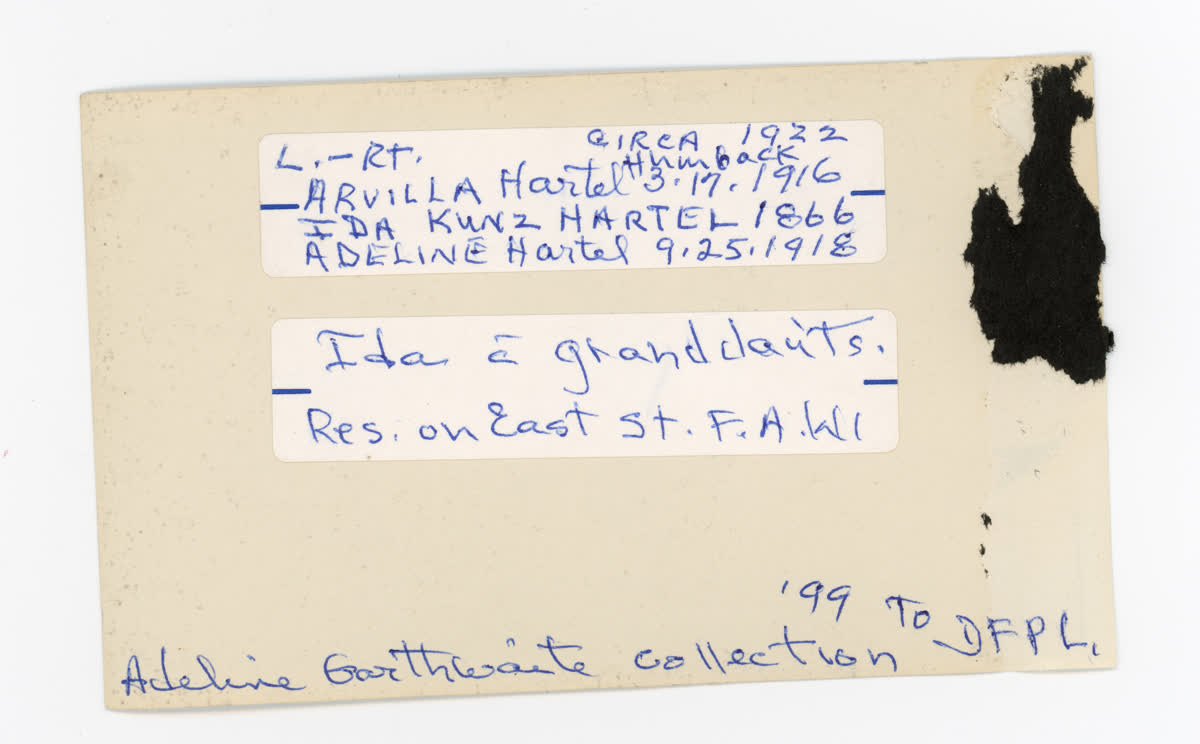 CIRCA 1922
L.-Rt.
Humback
ARVILLA Hartel 3.17.1916
IDA KUNZ HARTEL 1866
ADELINE Hartel 9.25.1918
Ida c̄ granddaúts.
Res. on East St. F.A. WI
'99 TO DFPL.
Adeline Garthwaite collection